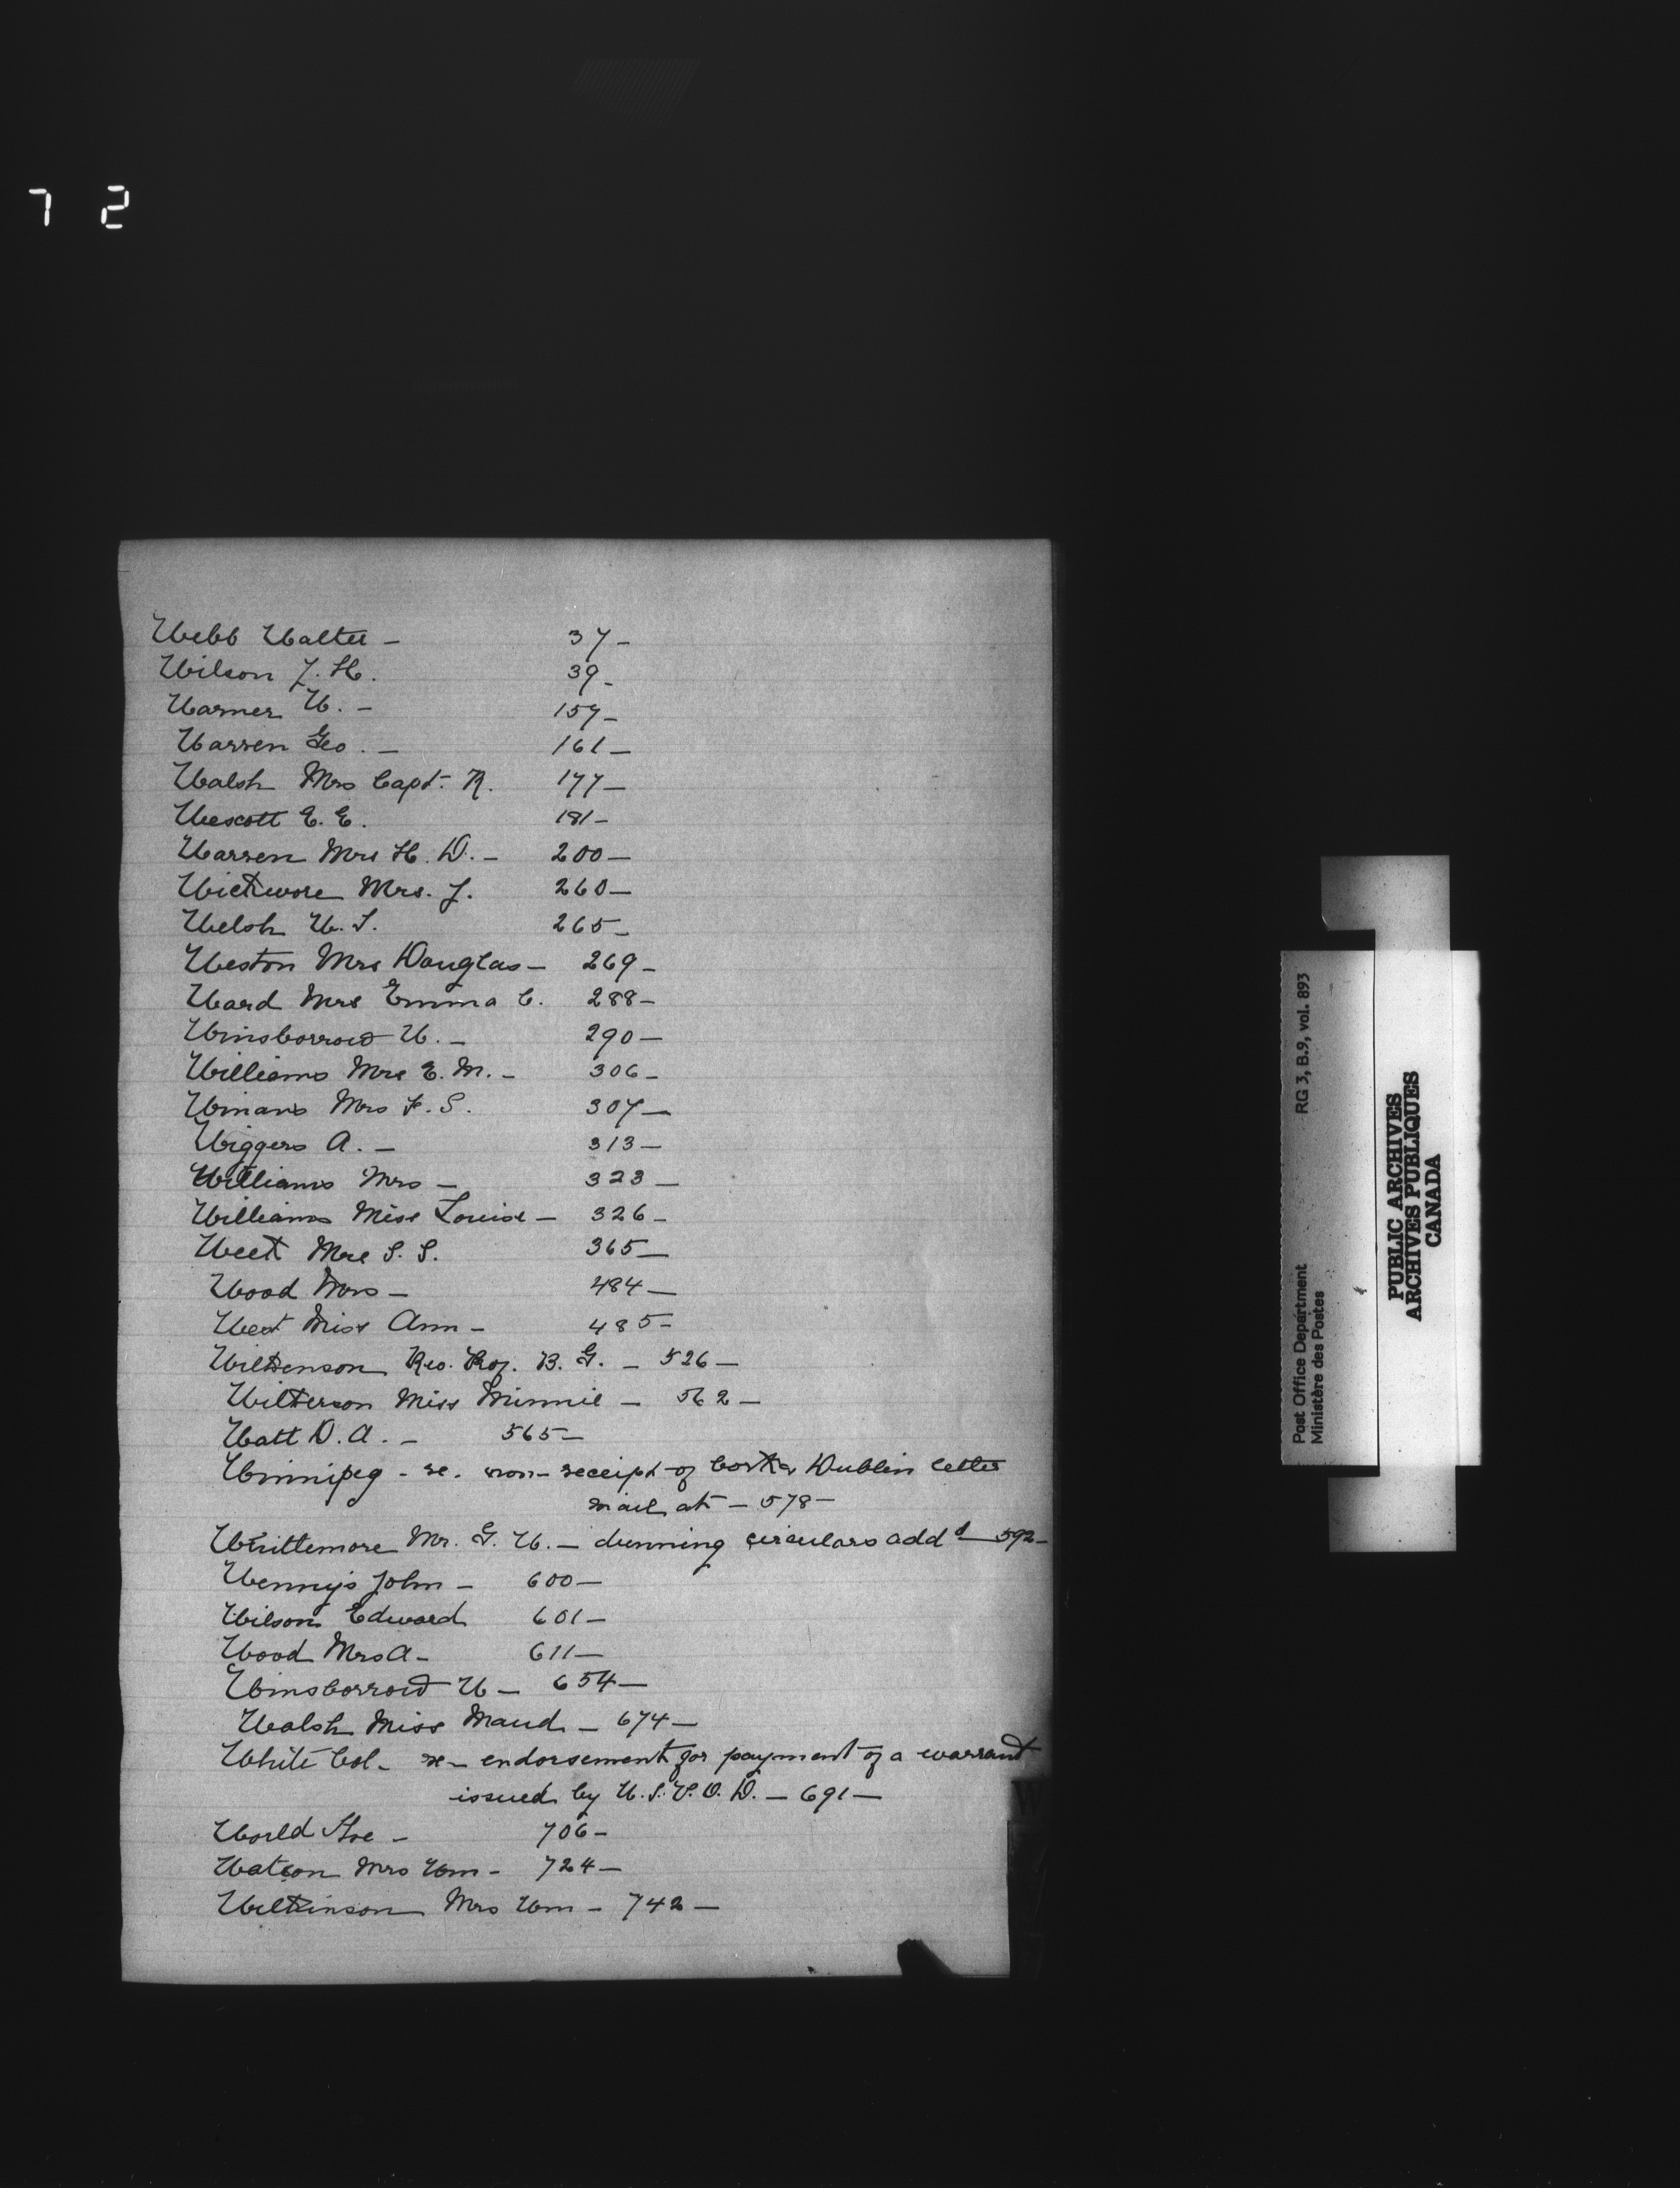 7 2
Webb Walter - 37-
Wilson J. H. 39-
Warner W. - 157-
Warren Geo. - 161-
Walsh Mrs Capt. R. 177-
Wescott E. E. 181-
Warren Mrs H. D. - 200-
Wickwore Mrs. J. 260-
Welsh W. S. 265-
Weston Mrs Douglas - 269-
Ward Mrs Emma C. 288-
Winsborrow W. - 290-
Williams Mrs E. M. - 306-
Winans Mrs F. S. 307-
Wiggers A. - 313-
Williams Mrs - 323-
Williams Miss Louise - 326-
West Mrs S. S. 365-
Wood Mrs - 484-
West Miss Ann - 485-
Wilkenson Rev. Prof. B. G. - 526-
Wilkerson Miss Minnie - 562-
Watt D. A. - 565-
Winnipeg - re. non-receipt of Cork & Dublin letter
mail at - 578-
Whittemore Mr. G. W. - dunning circulars add d - 592-
Wennys John - 600-
Wilson Edward 601-
Wood Mrs A - 611-
Winsborrow W - 654-
Walsh Miss Maud - 674-
White Col - re - endorsement for payment of a warrant
issued by U. S. P. O. D. - 691-
World The - 706-
Watson Mrs Wm - 724-
Wilkinson Mrs Wm - 742-
Post Office Department RG 3, B.9, vol. 893
Ministère des Postes
PUBLIC ARCHIVES
ARCHIVES PUBLIQUES
CANADA